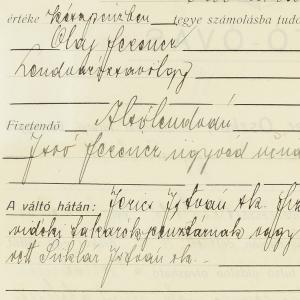 értéke készpénzben tegye számolásba tudo
Oláj Ferencz
Lendvarózsavölgy
Fizetendő Alsólendván
Ivó Ferencz ügyvéd
A váltó hátán: Jerics István sk.
vidéki takarékpénztárnak vagy
rett Suklár István sk.